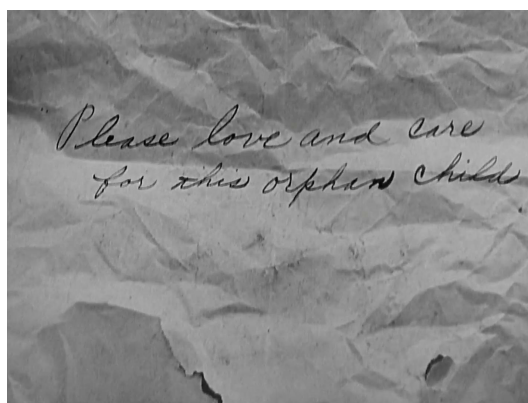 Please love and care
for this orphan child.